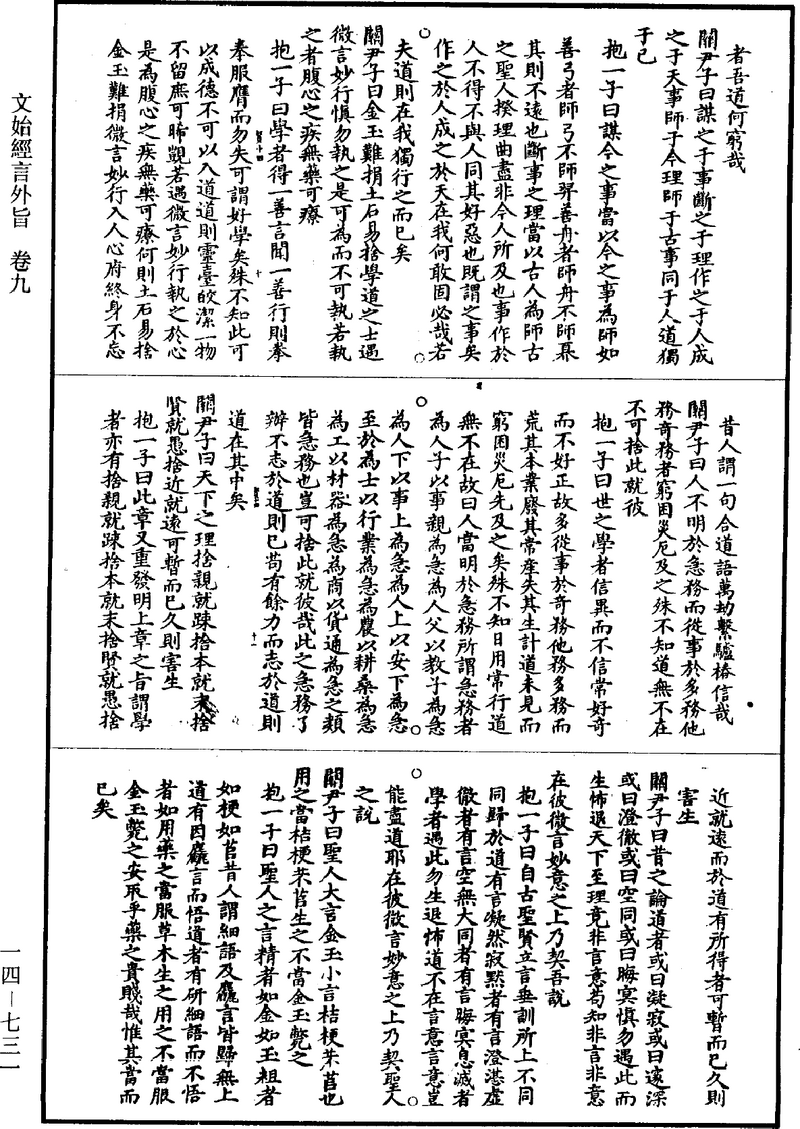 者吾道何窮哉
關尹子曰謀之于事斷之于理作之于人成
之于天事師于今理師于古事同于人道獨
于已
抱一子曰謀今之事當以今之事為師如
善弓者師弓不師羿善舟者師舟不師奡
其則不遠也斷事之理當以古人為師古
之聖人揆理曲盡非今人所及也事作於
人不得不與人同其好惡也既謂之事矣
作之於人成之於天在我何敢固必哉若
夫道則在我獨行之而已矣
關尹子曰金玉難捐土石易捨學道之士遇
微言妙行慎勿執之是可為而不可執若執
之者腹心之疾無藥可療
抱一子曰學者得一善言聞一善行則拳
拳服膺而勿失可謂好學矣殊不知此可
以成德不可以入道道則靈臺皎潔一物
不留庶可睎覬若遇微言妙行執之於心
是為腹心之疾無藥可療何則土石易捨
金玉難捐微言妙行入人心府終身不忘
昔人謂一句合道語萬劫繫驢樁信哉
關尹子曰人不明於急務而從事於多務他
務奇務者窮困災厄及之殊不知道無不在
不可捨此就彼
抱一子曰世之學者信異而不信常好奇
而不好正故多從事於奇務他務多務而
荒其本業廢其常產失其生計道未見而
窮困災厄先及之矣殊不知日用常行道
無不在故曰人當明於急務所謂急務者
為人子以事親為急為人父以教子為急
為人下以事上為急為人上以安下為急
至於為士以行業為急為農以耕桑為急
為工以材器為急為商以貨通為急之類
皆急務也豈可捨此就彼哉此之急務了
辦不志於道則已苟有餘力而志於道則
道在其中矣
關尹子曰天下之理捨親就踈捨本就末捨
賢就愚捨近就遠可暫而已久則害生
抱一子曰此章又重發明上章之旨謂學
者亦有捨親就踈捨本就末捨賢就愚捨
近就遠而於道有所得者可暫而已久則
害生
關尹子曰昔之論道者或曰凝寂或曰邃深
或曰澄徹或曰空同或曰晦冥慎勿遇此而
生怖退天下至理竟非言意苟知非言非意
在彼微言妙意之上乃契吾說
抱一子曰自古聖賢立言垂訓所上不同
同歸於道有言凝然寂默者有言澄湛虛
徹者有言空無大同者有言晦冥息滅者
學者遇此勿生退怖道不在言意言意豈
能盡道耶在彼微言妙意之上乃契聖人
之說
關尹子曰聖人大言金玉小言桔梗芣苢也
用之當桔梗芣苢生之不當金玉斃之
抱一子曰聖人之言精者如金如玉粗者
如梗如苢昔人謂細語及麤言皆歸無上
道有因麤言而悟道者有研細語而不悟
者如用藥之當服草木生之用之不當服
金玉斃之安取乎藥之貴賤哉惟其當而
已矣
文始經言外旨　卷九
一四—七三一